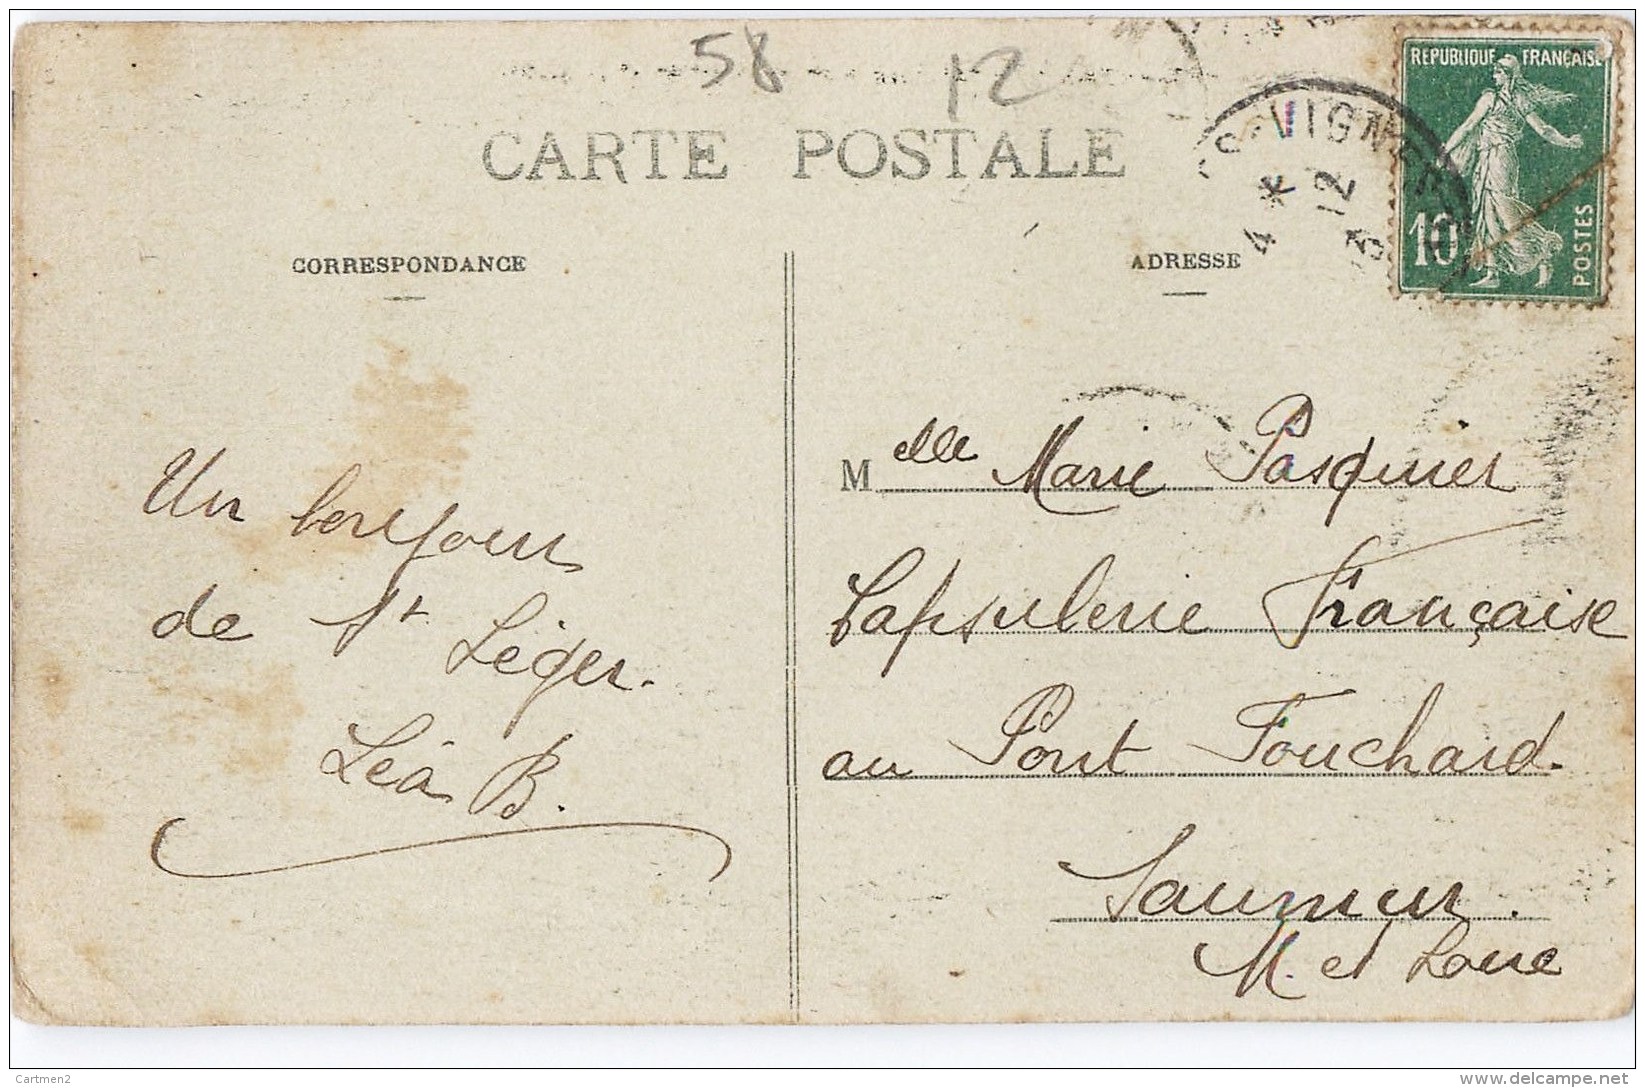 58 12
CARTE POSTALE
RÉPUBLIQUE FRANÇAISE
10
POSTES
4 * 12
CORRESPONDANCE
Un bonjour
de St Léger.
Léa B.
ADRESSE
Melle Marie Pasquier
Capsulerie Française
au Pont Fouchard.
Saumur.
M. et Loire
Cartmen2
delcampe.net